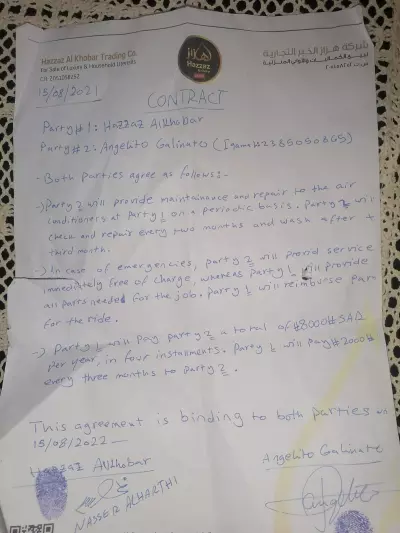 Hazzaz Al Khobar Trading Co.
For Sale of Luxury & Household Utensils
CR 2051058252
شركة هزاز الخبر التجارية
لبيع الكماليات والأواني المنزلية
هزاز
Hazzaz
15/08/2021
CONTRACT
Party#1: Hazzaz Alkhobar
Party#2: Angelito Galinato (Iqama#2385050865)
- Both Parties agree as follows:-
-) Party 2 will provide maintainance and repair to the air
conditioners at Party 1 on a periodic basis. Party 2 will
check and repair every two months and wash after
third month.
-) In case of emergencies, party 2 will provid service
immediately free of charge, whereas party 1 will provide
all parts needed for the job. Party 1 will reimburse
for the ride.
-) Party 1 will pay party 2 a total of #8000# SAR
per year, in four installments. Party 1 will pay #2000#
every three months to Party 2.
This agreement is binding to both parties
15/08/2022
Hazzaz Alkhobar
Angelito Galinato
NASSER ALHARTHI